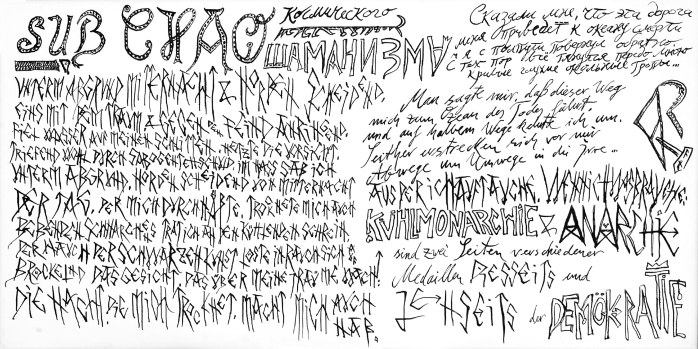 SUB CHAO
Космического
ШАМАНИЗМА
UNTERM ABGRUND MITTERNACHT & HORDEN SCHEIDEND,
EINS MIT DEM TRAUM & GEGEN DEN FEIND ANRENND,
FIEL WASSER AUF MEINEN SCHLITTEN, NETZTE DIE VORSICHT.
TRIEFEND WOHL DURCH
UNTERM ABGRUND, HORDEN SCHEIDEND VON MITTERNACHT
DER TAG, DER MICH DURCHNÄSSTE, TROCKNETE MICH AUCH
BEBENDEN SCHNARCHENS RATION AN DEN KÜHLENDEN SCHREIN.
DER RAUCH DER SCHWARZEN KUNST LÖSTE IN RAUCH SICH &
BRÖCKELND DAS GESICHT DAS ÜBER MEINE TRÄUME WACH!
DIE NACHT, DIE MICH TROCKNET, MACHT MICH AUCH
NAß.
Сказали мне, что эта дорога
меня приведёт к океану смерти
и я с полпути повернул обратно
С тех пор всё тянутся передо мною
кривые глухие окольные тропы...
Man sagte mir, daß dieser Weg
mich zum Ozean des Todes führt,
und auf halbem Wege kehrte ich um.
Seither erstrecken sich vor mir
Abwege um Umwege in die Irre...
AUS DER ICH AUFTAUCHE, WENN ICH DAS BRAUCHE.
KUHLMONARCHIE & ANARCHIE
sind zwei Seiten verschiedener
Medaillen DIESSEITS und
JENSEITS der DEMÖKRATIE